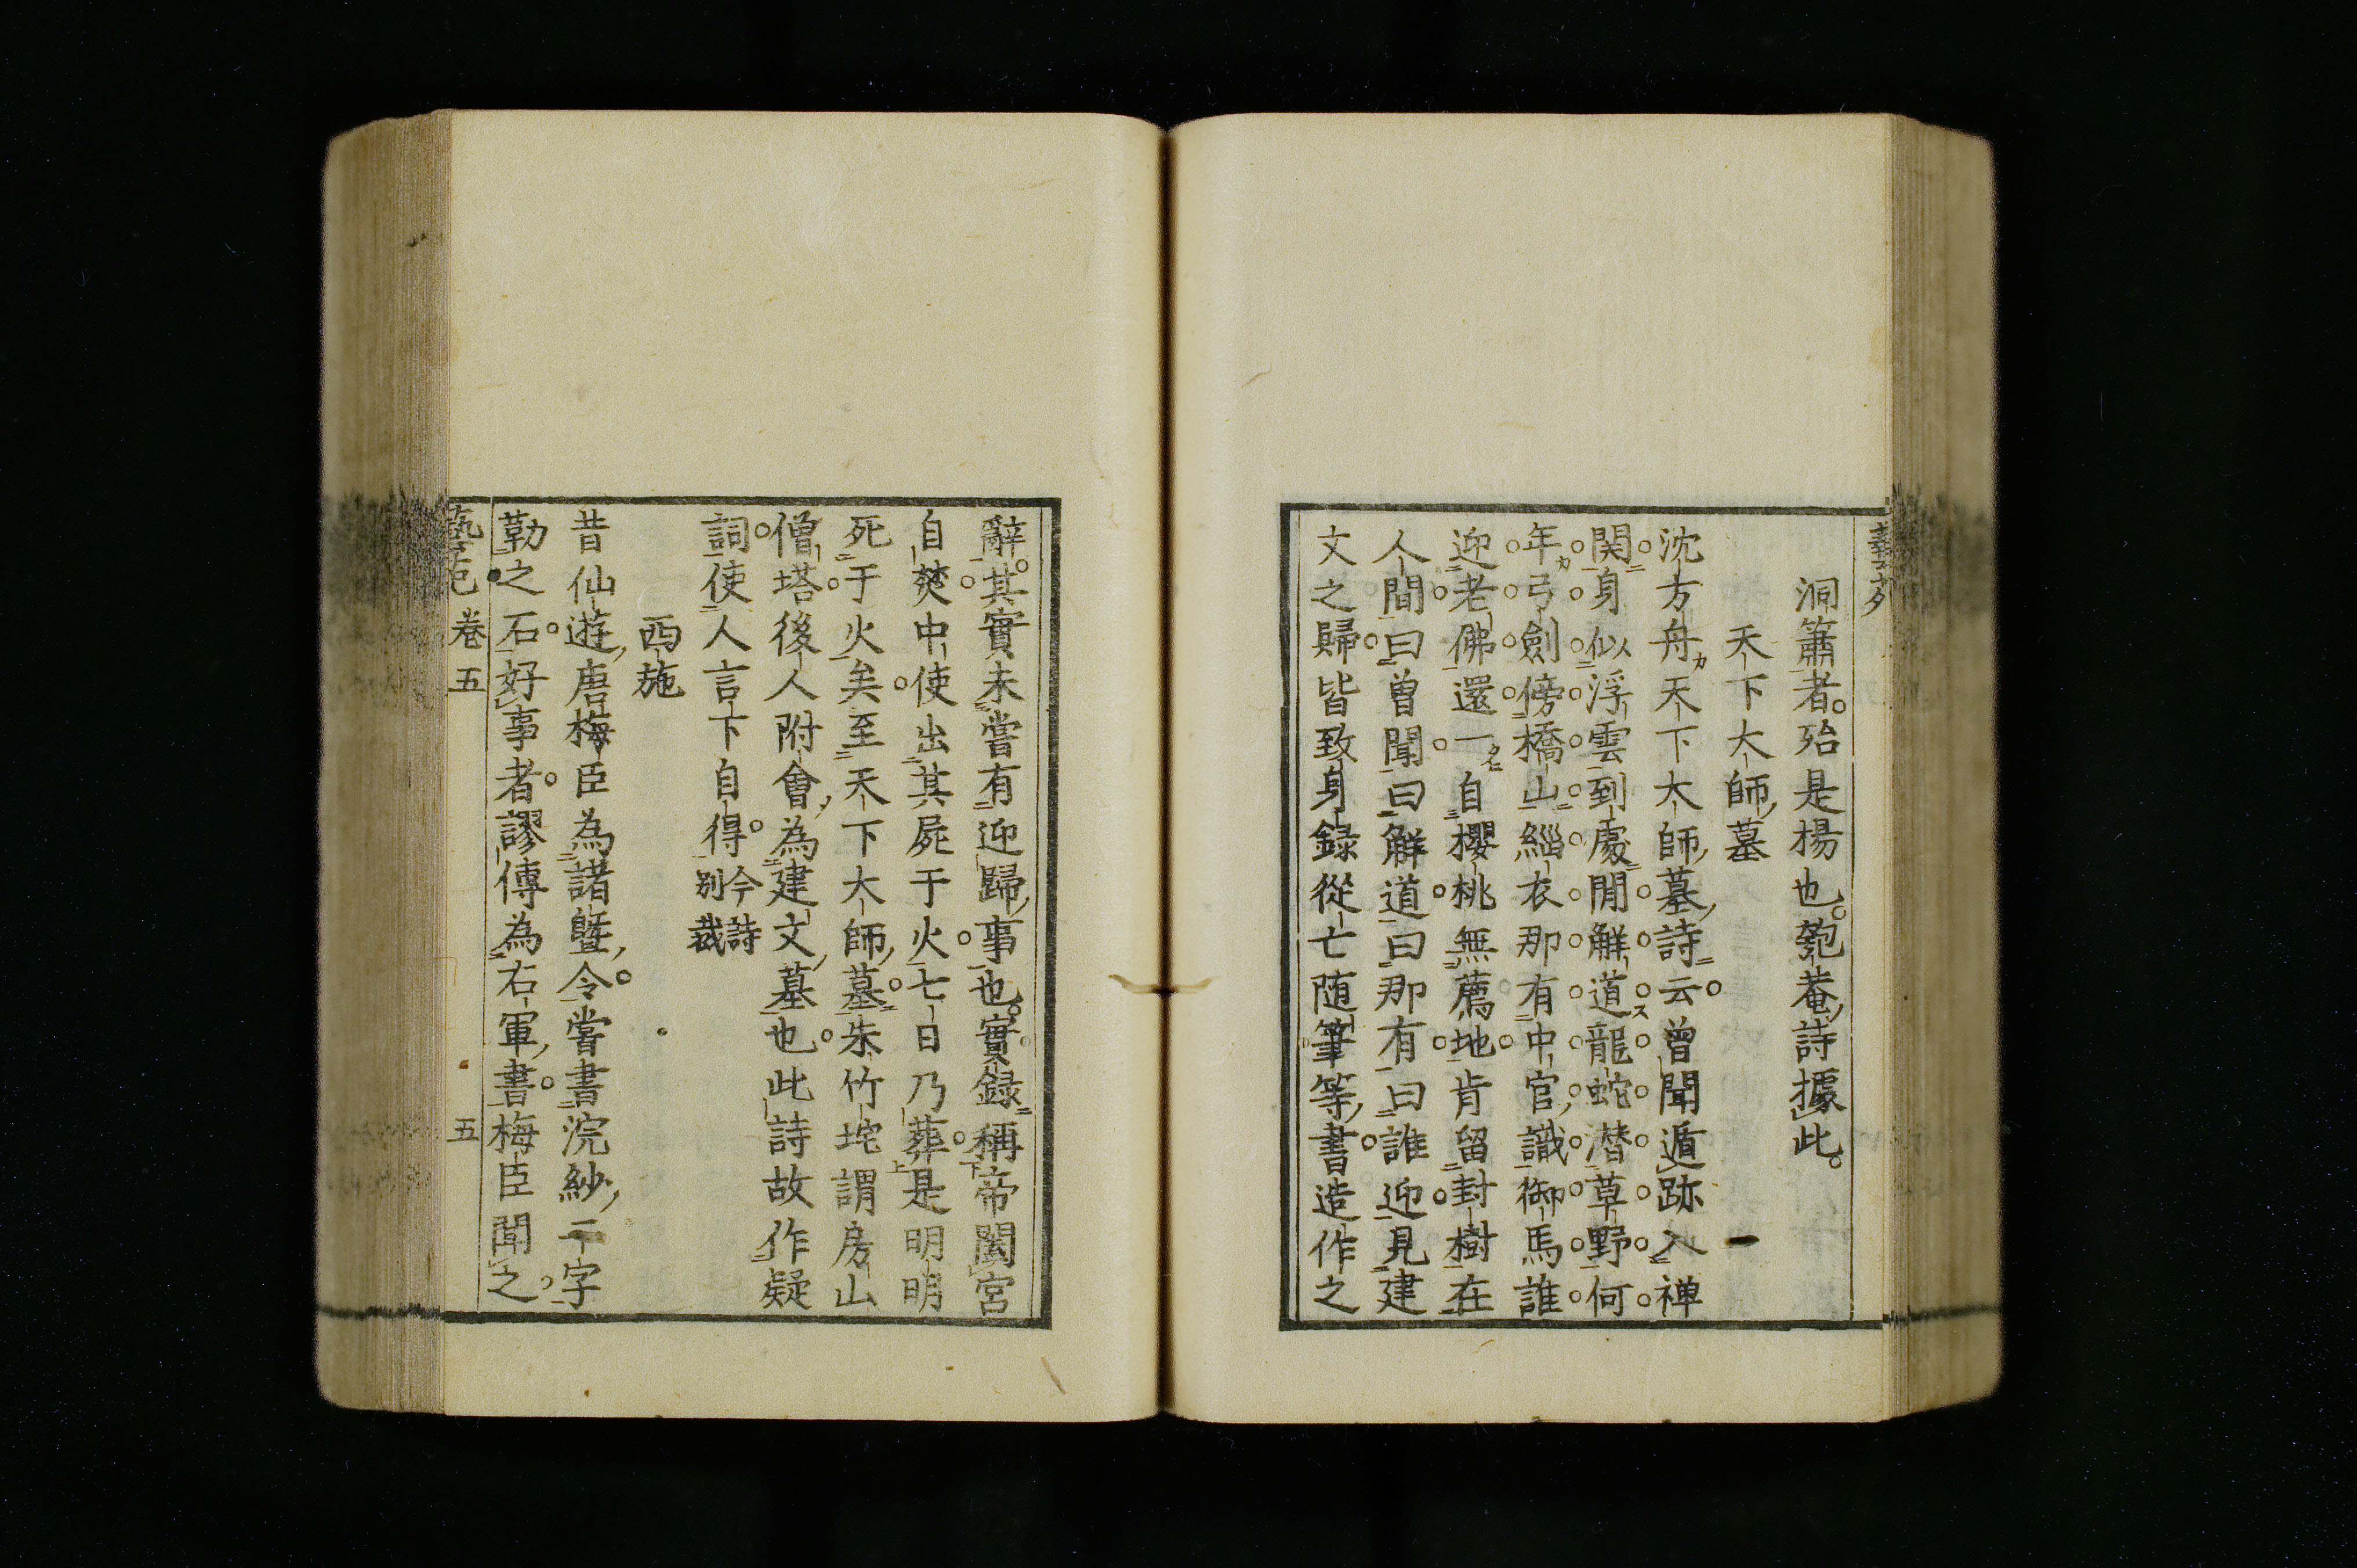 洞簫者。殆是楊也。匏菴詩據此。
天下大師墓
沈方舟天下大師墓詩云。曾聞遁跡入禅
関。身似浮雲到處閒。觧道龍蛇潜草野。何
年弓劍傍橋山。緇衣那有中官識。御馬誰
迎老佛還。一自櫻桃無薦地。肯留封樹在
人間。曰曾聞。曰觧道。曰那有。曰誰迎。見建
文之歸。皆致身録從亡随筆等書。造作之
辭。其實未嘗有迎歸事也。實録稱帝闔宮
自焚。中使出其屍于火。七日乃葬。是明明
死于火矣。至天下大師墓。朱竹垞謂房山
僧塔。後人附會為建文墓也。此詩故作疑
詞。使人言下自得。今詩
別裁
西施
昔仙遊唐梅臣為諸曁令。嘗書浣紗二字
勒之石。好事者。謬傳為右軍書。梅臣聞之。
卷五
五